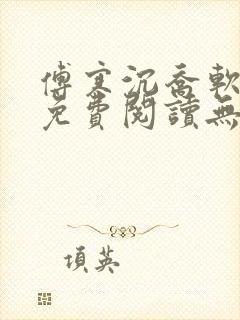 傅寒沉喬軟
免費閱讀無
項英